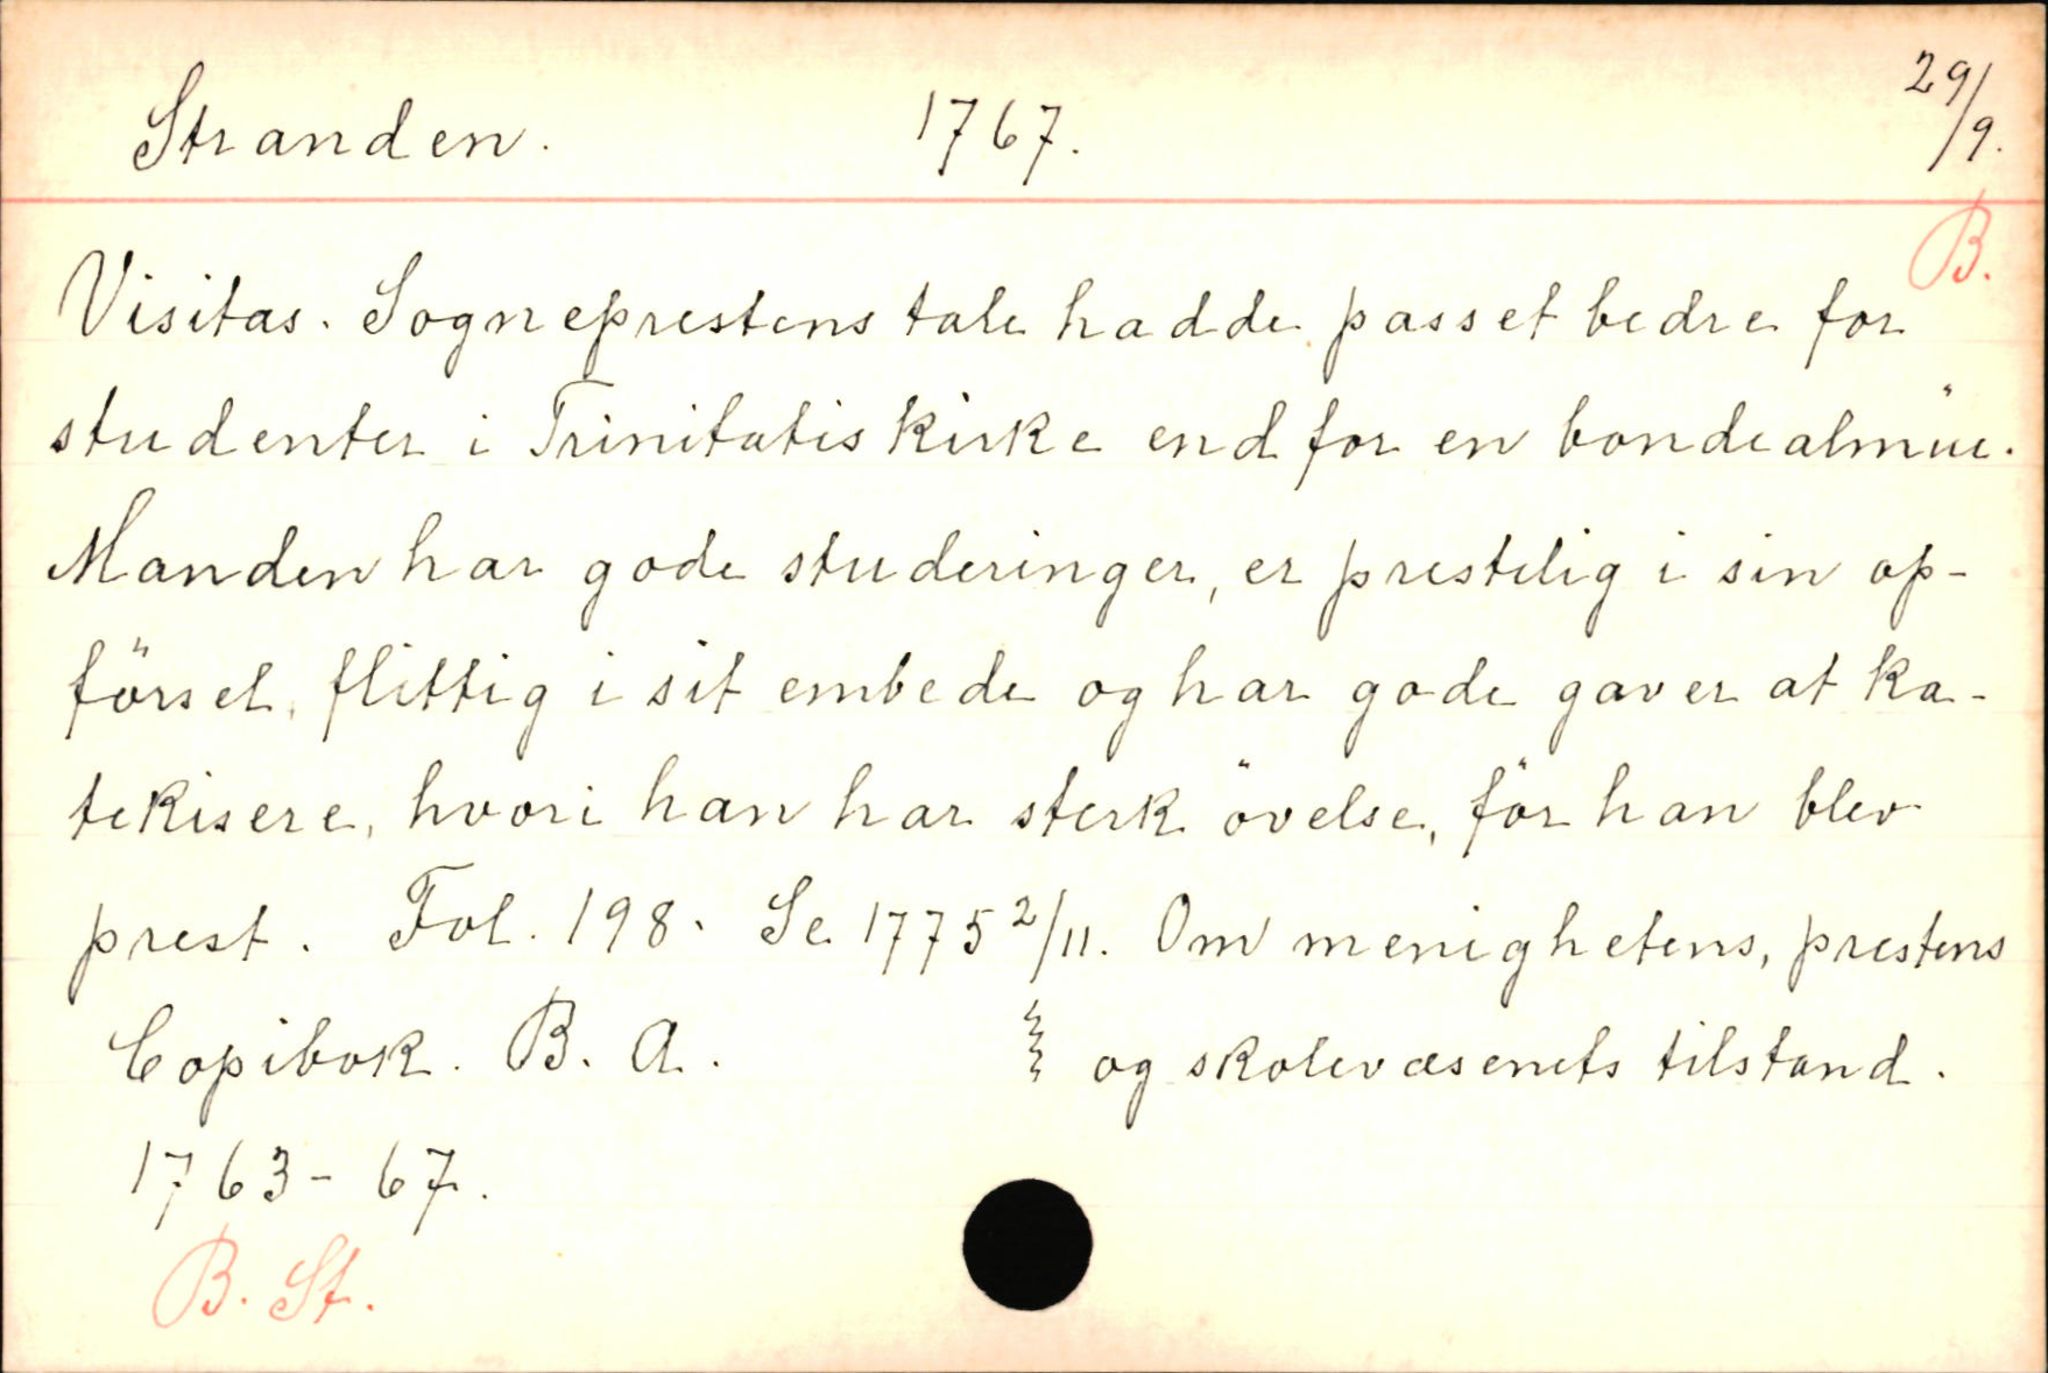 Stranden. 1767. 29/9.
B.
Visitas. Sogneprestens tale hadde passet bedre for
studenter i Trinitatis kirke end for en bondealmüe.
Manden har gode studeringer, er prestelig i sin op-
försel, flittig i sit embede og har gode gaver at ka-
tekisere, hvori han har sterk övelse, för han blev
prest. Fol. 198. Se 1775 2/11. Om menighetens, prestens
Copibok. B. A. og skolevæsenets tilstand.
1763-67.
B. St.